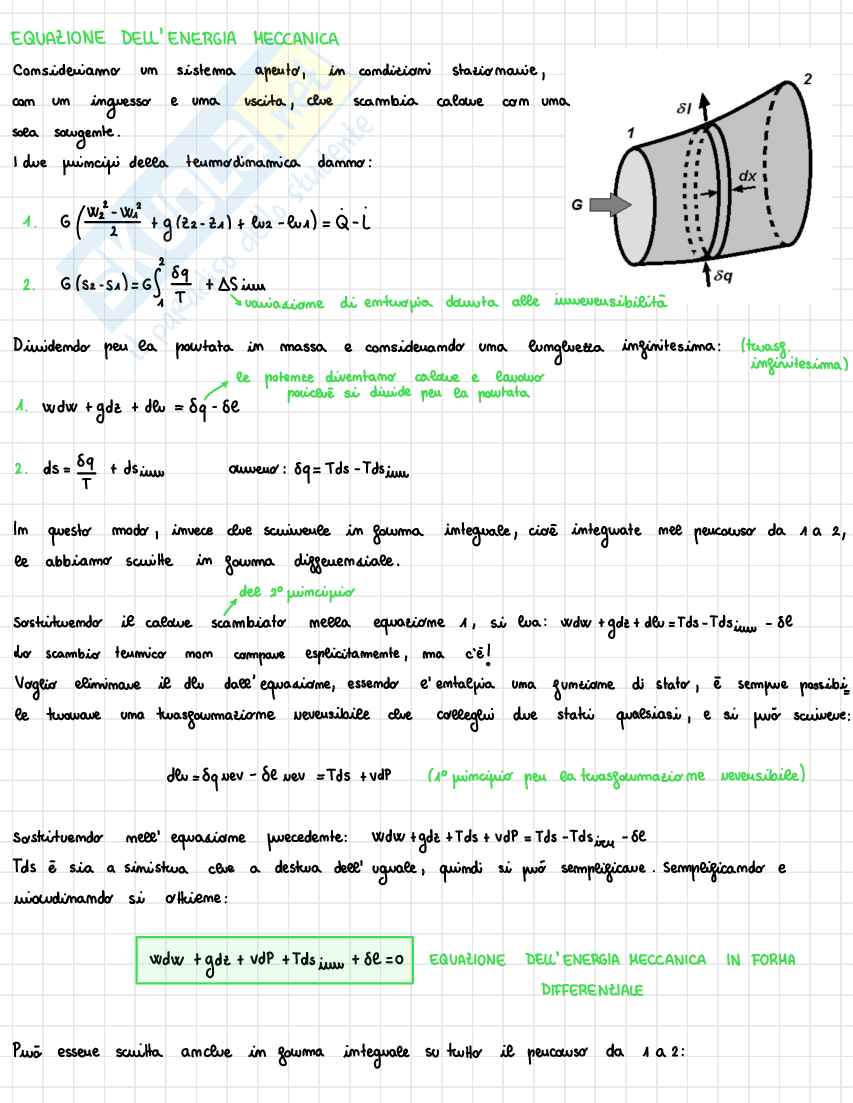 EQUAZIONE DELL'ENERGIA MECCANICA
Consideriamo un sistema aperto, in condizioni stazionarie,
con un ingresso e una uscita, che scambia calore con una
sola sorgente.
I due principi della termodinamica danno:
1. G (w₂² - w₁²/2 + g (z₂ - z₁) + h2 - h1) = Q̇ - L̇
2. G (s₂ - s₁) = G ∫₁² δq/T + ΔṠ irr
variazione di entropia dovuta alle irreversibilità
1
2
δl
dx
G
δq
Dividendo per la portata in massa e considerando una lunghezza infinitesima: (trasf. infinitesima)
le potenze diventano calore e lavoro
poichè si divide per la portata
1. wdw + gdz + dh = δq - δl
2. ds = δq/T + ds irr ovvero: δq = Tds - Tds irr
In questo modo, invece che scriverle in forma integrale, cioè integrate nel percorso da 1 a 2,
le abbiamo scritte in forma differenziale.
del 2° principio
Sostituendo il calore scambiato nella equazione 1, si ha: wdw + gdz + dh = Tds - Tds irr - δl
Lo scambio termico non compare esplicitamente, ma c'è!
Voglio eliminare il dh dall'equazione, essendo l'entalpia una funzione di stato, è sempre possibi
le trovare una trasformazione reversibile che colleghi due stati qualsiasi, e si può scrivere:
dh = δq rev - δl rev = Tds + vdP (1° principio per la trasformazione reversibile)
Sostituendo nell'equazione precedente: wdw + gdz + Tds + vdP = Tds - Tds irr - δl
Tds è sia a sinistra che a destra dell'uguale, quindi si può semplificare. Semplificando e
riordinando si ottiene:
wdw + gdz + vdP + Tds irr + δl = 0 EQUAZIONE DELL'ENERGIA MECCANICA IN FORMA
DIFFERENZIALE
Può essere scritta anche in forma integrale su tutto il percorso da 1 a 2:
SKUOLA.net
il paradiso dello studente